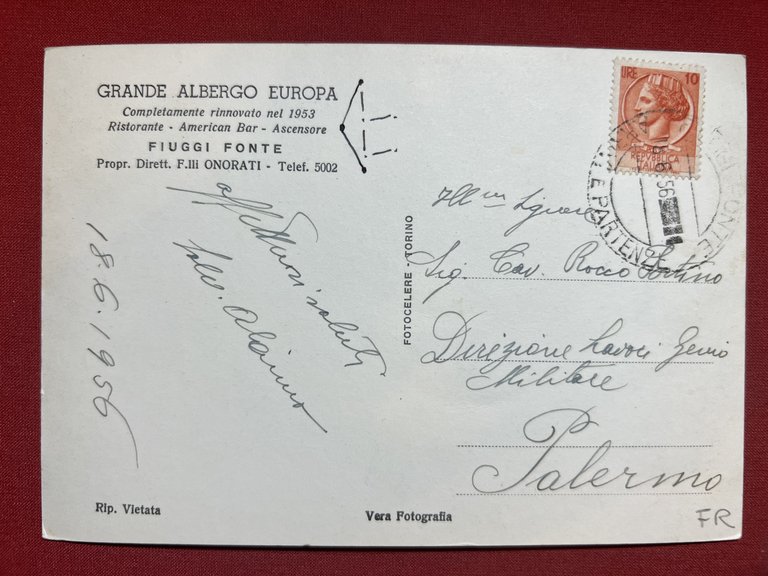 GRANDE ALBERGO EUROPA
Completamente rinnovato nel 1953
Ristorante - American Bar - Ascensore
FIUGGI FONTE
Propr. Dirett. F.lli ONORATI - Telef. 5002
affettuosi saluti
18.6.1956
Rip. Vietata
FOTOCELERE - TORINO
Vera Fotografia
LIRE 10
REPUBBLICA
ITALIANA
56
PARTENZE
Sig. Cav. Rocco
Direzione Lavori Genio
Militare
Palermo
FR